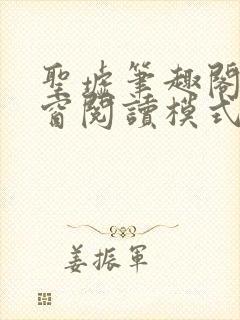 聖墟筆趣閣
窗閱讀模式
姜振軍